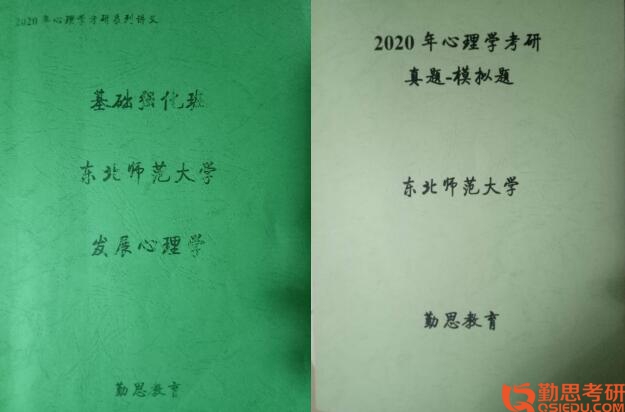 2020年心理学考研系列讲义
基础强化班
东北师范大学
发展心理学
勤思教育
2020年心理学考研
真题-模拟题
东北师范大学
勤思教育
勤思考研
QSIEDU.COM